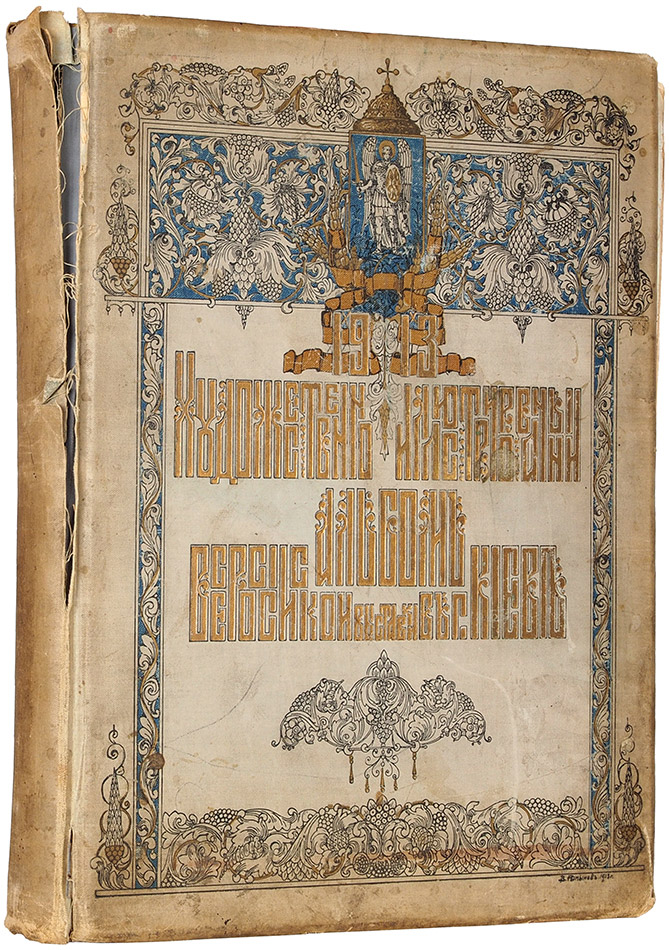 1913
ХУДОЖЕСТВЕННО ИЛЛЮСТРИРОВАННЫЙ
АЛЬБОМЪ
ВСЕРОССІЙСКОЙ ВЫСТАВКИ ВЪ Г. КІЕВѢ